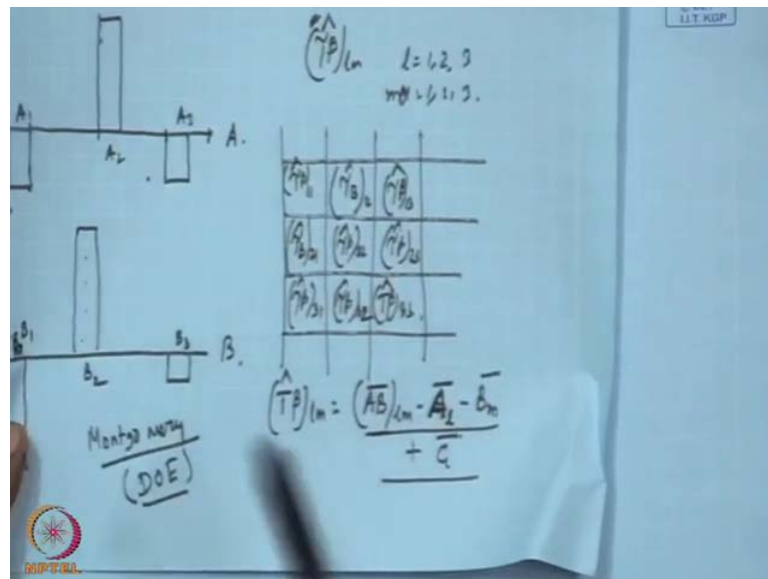 I.I.T. KGP
(τ̂β)lm l = 1, 2, 3
m = 1, 2, 3.
A1 A2 A3 A.
(τ̂β)11 (τ̂β)12 (τ̂β)13
(τ̂β)21 (τ̂β)22 (τ̂β)23
(τ̂β)31 (τ̂β)32 (τ̂β)33
B1 B2 B3 B.
(τ̂β)lm = (A̅B̅)lm - A̅l - B̅m
+ G̅
Montgomery
(DOE)
NPTEL